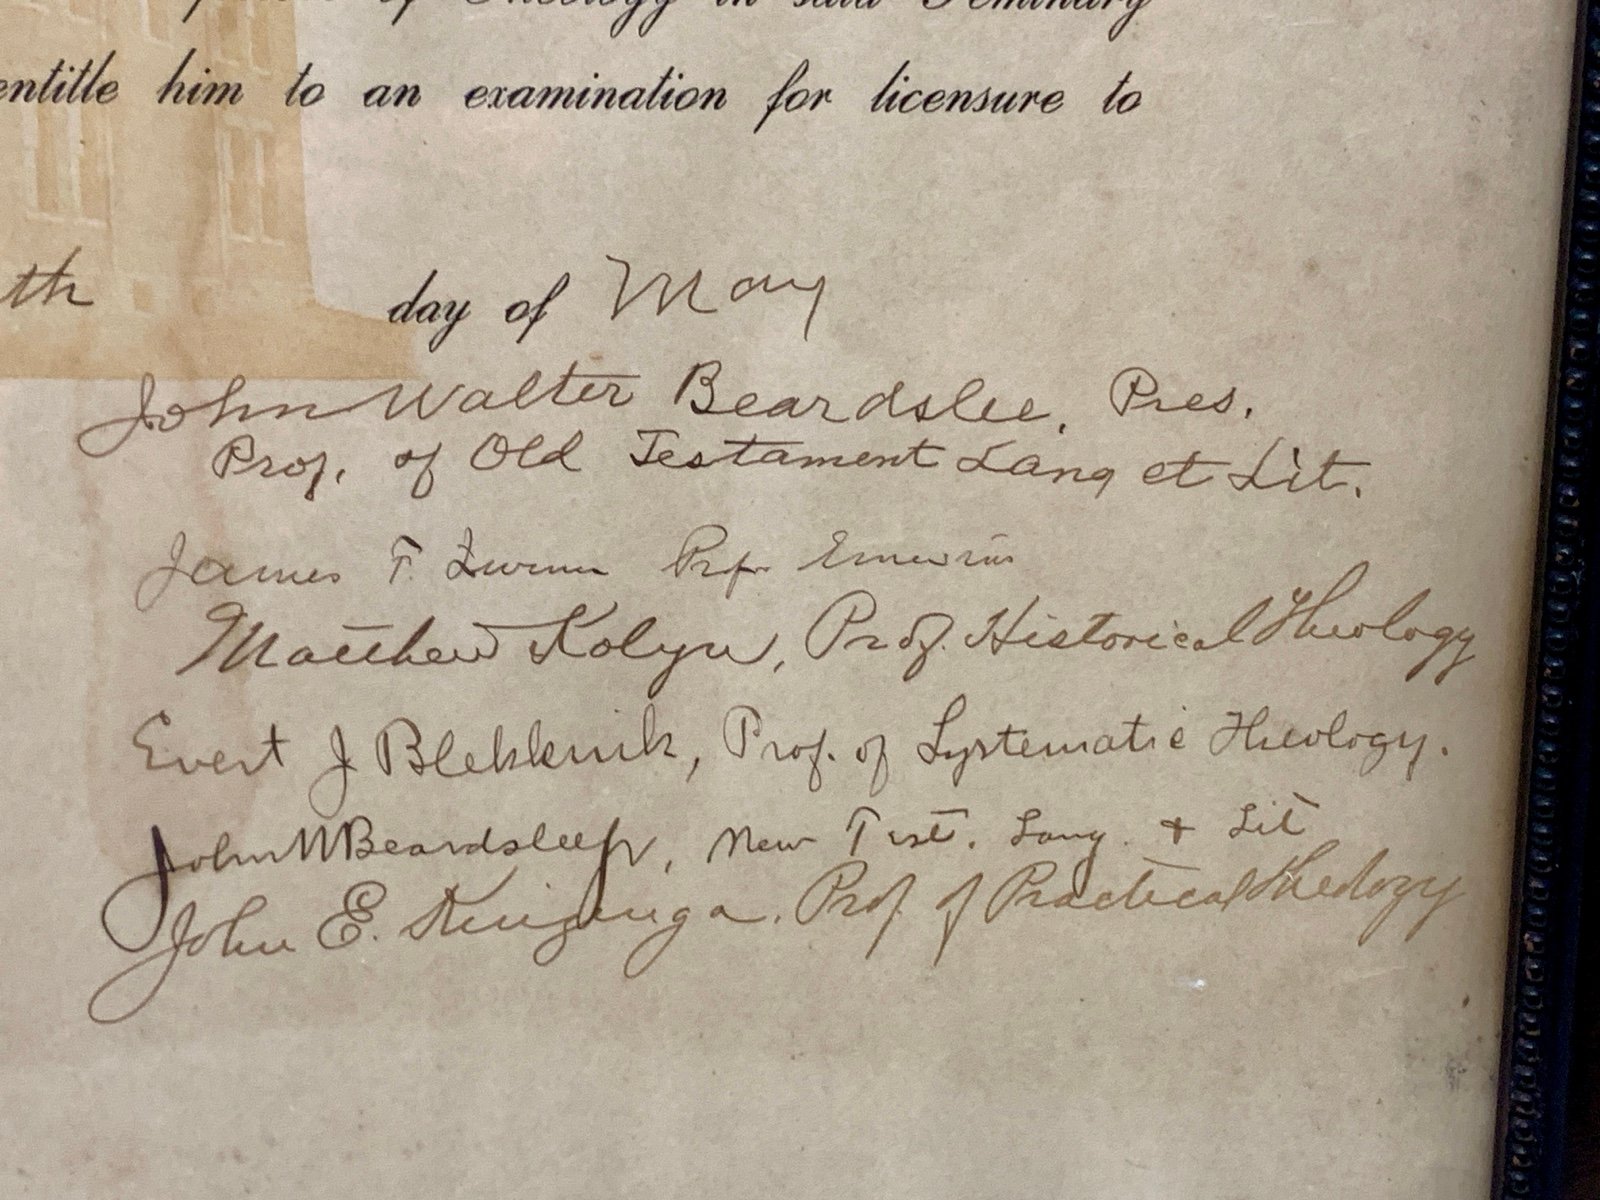 of Theology in said Seminary
entitle him to an examination for licensure to
th day of May
John Walter Beardslee, Pres.
Prof. of Old Testament Lang et Lit.
James F. Zwemer Prof. Emeritus
Matthew Kolyn, Prof. Historical Theology
Evert J Blekkink, Prof. of Systematic Theology.
John W Beardslee Jr, New Test. Lang. & Lit
John E. Kuizenga. Prof. of Practical Theology